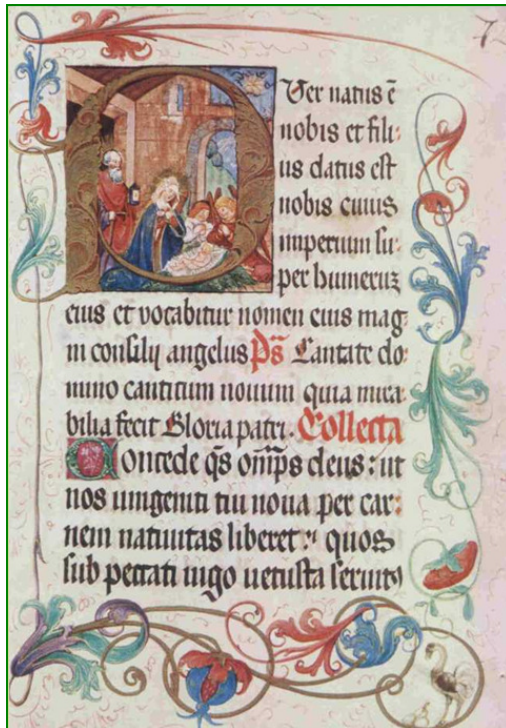 7
Uer natus ē
nobis et fili⸗
us datus est
nobis cuius
imperium su⸗
per humeruz
eius et vocabitur nomen eius mag⸗
ni consilij angelus Ps̄ Cantate do⸗
mino canticum nouum quia mira⸗
bilia fecit Gloria patri. Collecta
Concede qs̄ omp̄s deus: ut
nos unigeniti tui noua per car⸗
nem natiuitas liberet: quos
sub peccati iugo uetusta seruit